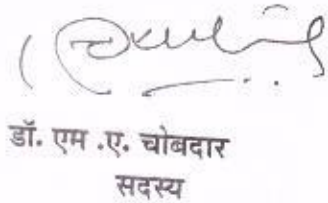 डॉ. एम .ए. चोबदार
सदस्य